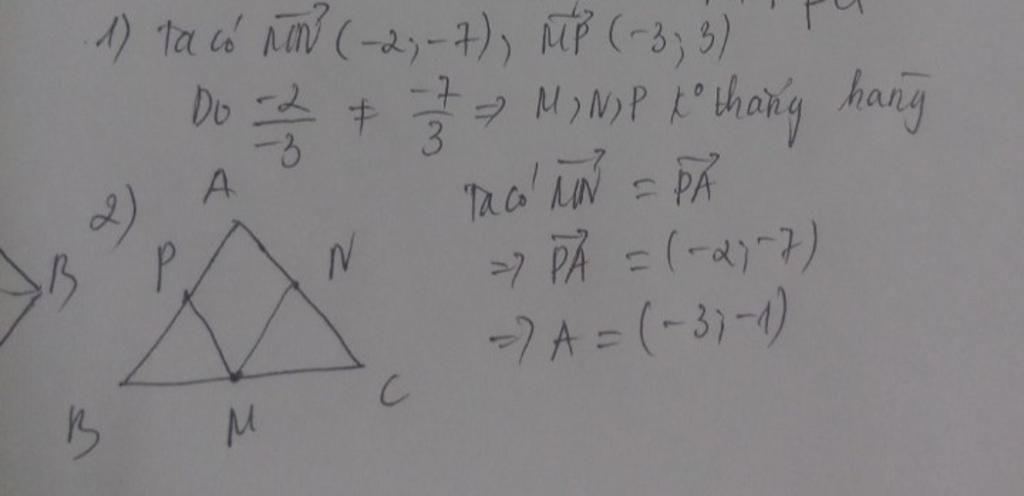 1) Ta có MN→ (-2; -7), MP→ (-3; 3)
Do -2/-3 ≠ -7/3 => M, N, P k° thẳng hàng
2)
A
P
N
B
M
C
B
Ta có MN→ = PA→
=> PA→ = (-2; -7)
=> A = (-3; -1)